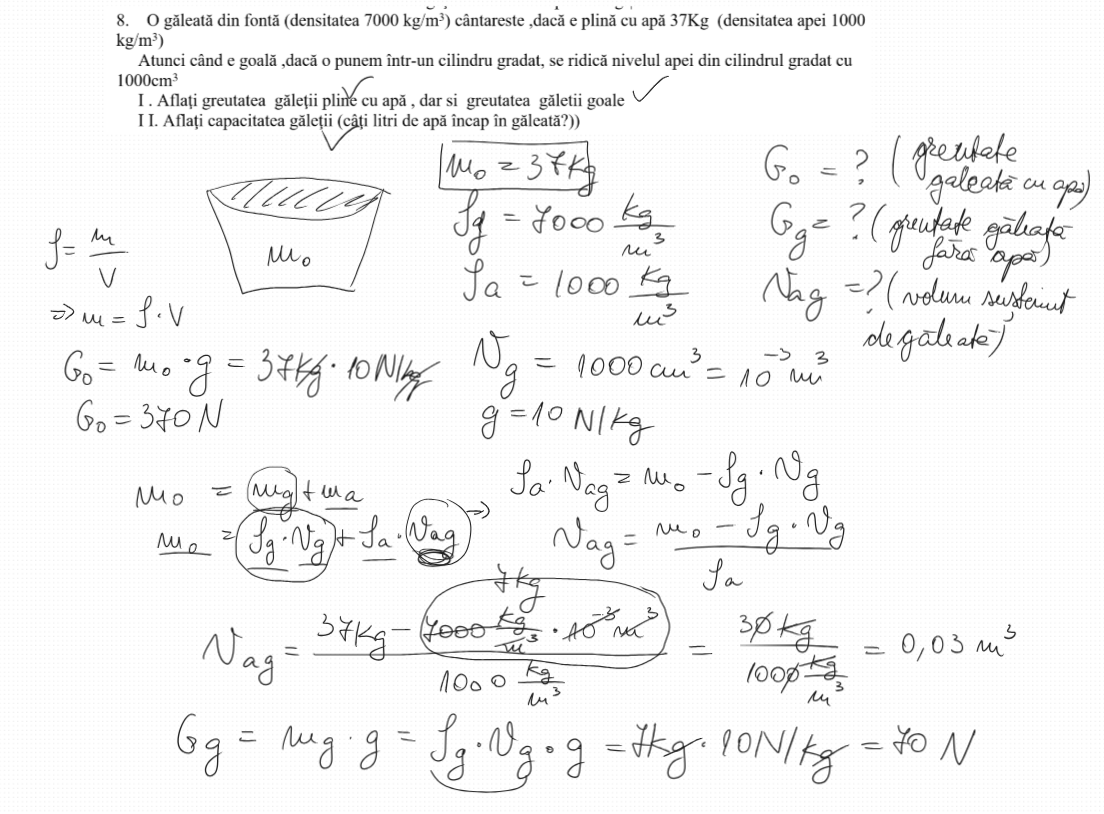 8. O găleată din fontă (densitatea 7000 kg/m³) cântareste ,dacă e plină cu apă 37Kg (densitatea apei 1000
kg/m³)
Atunci când e goală ,dacă o punem într-un cilindru gradat, se ridică nivelul apei din cilindrul gradat cu
1000cm³
I . Aflați greutatea găleții pline cu apă , dar si greutatea găletii goale
I I. Aflați capacitatea găleții (câți litri de apă încap în găleată?))
m₀ = 37Kg
G₀ = ? (greutate
galeată cu apă)
ρg = 7000 kg/m³
Gg = ? (greutate găleată
fără apă)
m₀
ρ = m/V
ρa = 1000 kg/m³
Vag = ? (volum susținut
de găleată)
=> m = ρ · V
G₀ = m₀ · g = 37kg · 10N/kg
Vg = 1000 cm³ = 10⁻³ m³
G₀ = 370 N
g = 10 N/kg
m₀ = mg + ma
ρa · Vag = m₀ – ρg · Vg
m₀ = ρg · Vg + ρa · Vag =>
Vag = (m₀ – ρg · Vg)/ρa
7kg
Vag = (37Kg – 7000 kg/m³ · 10⁻³ m³)/(1000 kg/m³) = (30 kg)/(1000 kg/m³) = 0,03 m³
Gg = mg · g = ρg · Vg · g = 7kg · 10N/kg = 70 N